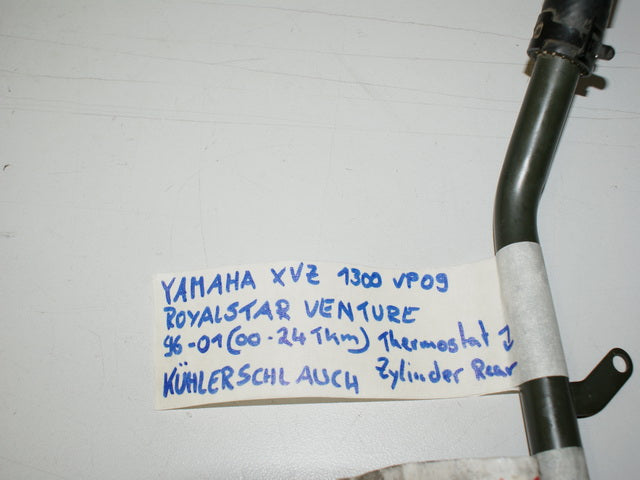 YAMAHA XVZ 1300 VP09
ROYALSTAR VENTURE
96-01 (00-24 Tkm) Thermostat
KÜHLERSCHLAUCH Zylinder Rear